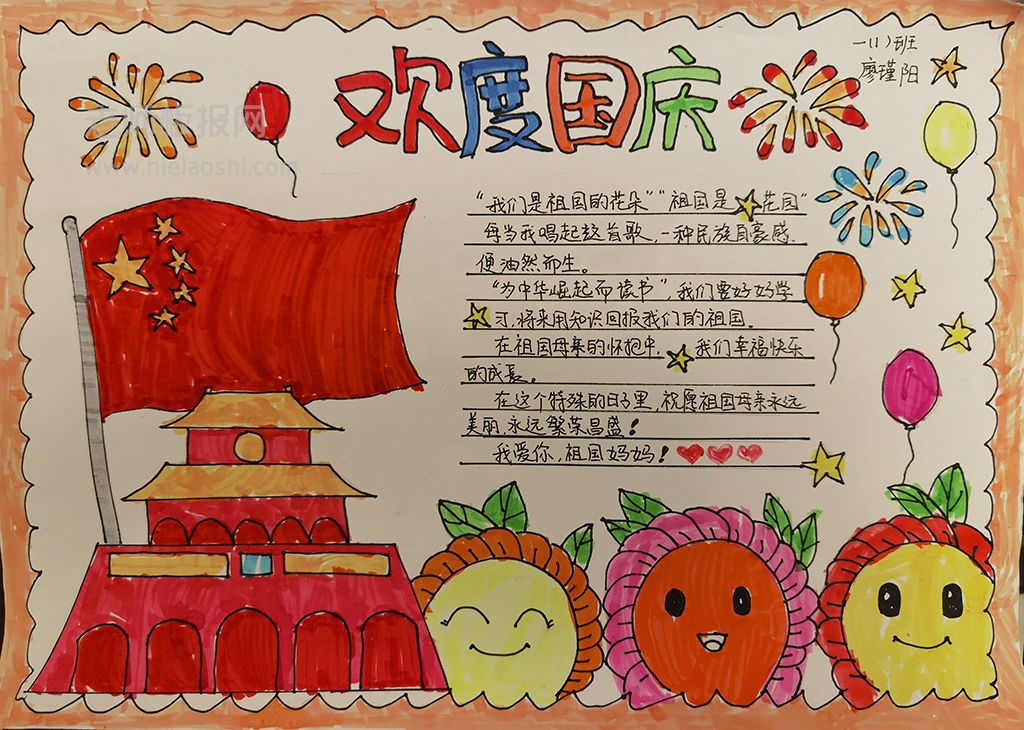 一(1)班
廖瑾阳
欢度国庆
www.nielaoshi.com
"我们是祖国的花朵""祖国是花园"
每当我唱起这首歌,一种民族自豪感
便油然而生。
"为中华崛起而读书",我们要好好学
习,将来用知识回报我们的祖国。
在祖国母亲的怀抱中,我们幸福快乐
的成长。
在这个特殊的日子里,祝愿祖国母亲永远
美丽,永远繁荣昌盛!
我爱你,祖国妈妈!